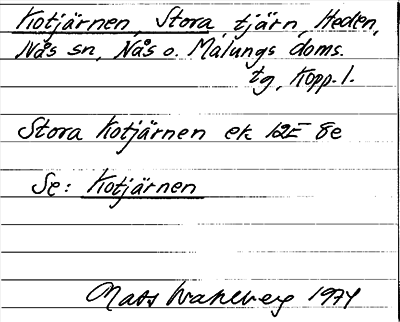 Kotjärnen, Stora tjärn, Heden,
Nås sn, Nås o. Malungs doms.
tg, Kopp. l.
Stora Kotjärnen ek 12E 8e
Se: Kotjärnen
Mats Wahlberg 1974